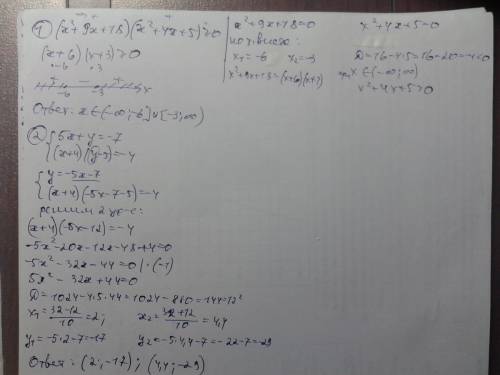 ① (x²+9x+18)(x²+4x+5)≥0
(x+6)(x+3)≥0
-6 -3
+ - + x
-6 -3
Ответ: x∈(-∞;-6]∪[-3;∞)
x²+9x+18=0
по т. Виета:
x₁=-6 x₂=-3
x²+9x+18=(x+6)(x+3)
x²+4x+5=0
D=16-4·5=16-20=-4<0
x∈(-∞;∞)
x²+4x+5>0
② {5x+y=-7
(x+4)(y-5)=-4
{y=-5x-7
(x+4)(-5x-7-5)=-4
решим 2 ур-е:
(x+4)(-5x-12)=-4
-5x²-20x-12x-48+4=0
-5x²-32x-44=0 |·(-1)
5x²-32x+44=0
D=1024-4·5·44=1024-880=144=12²
x₁=32-12/10=2; x₂=32+12/10=4,4
y₁=-5·2-7=-17 y₂=-5·4,4-7=-22-7=-29
Ответ: (2;-17); (4,4;-29)